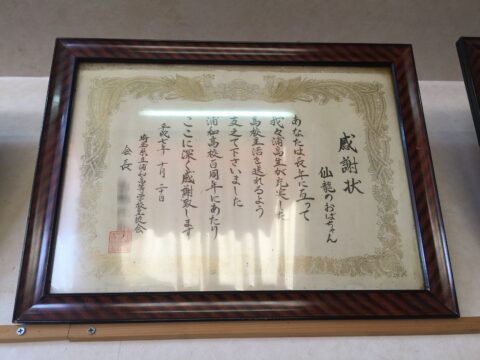 感謝状
仙龍のおばちゃん
あなたは長年に亘って
我々浦高生が充実した
高校生活を送れるよう
支えて下さいました
浦和高校百周年にあたり
ここに深く感謝致します
平成七年 十月 二日
埼玉県立浦和高等学校生徒会
会長